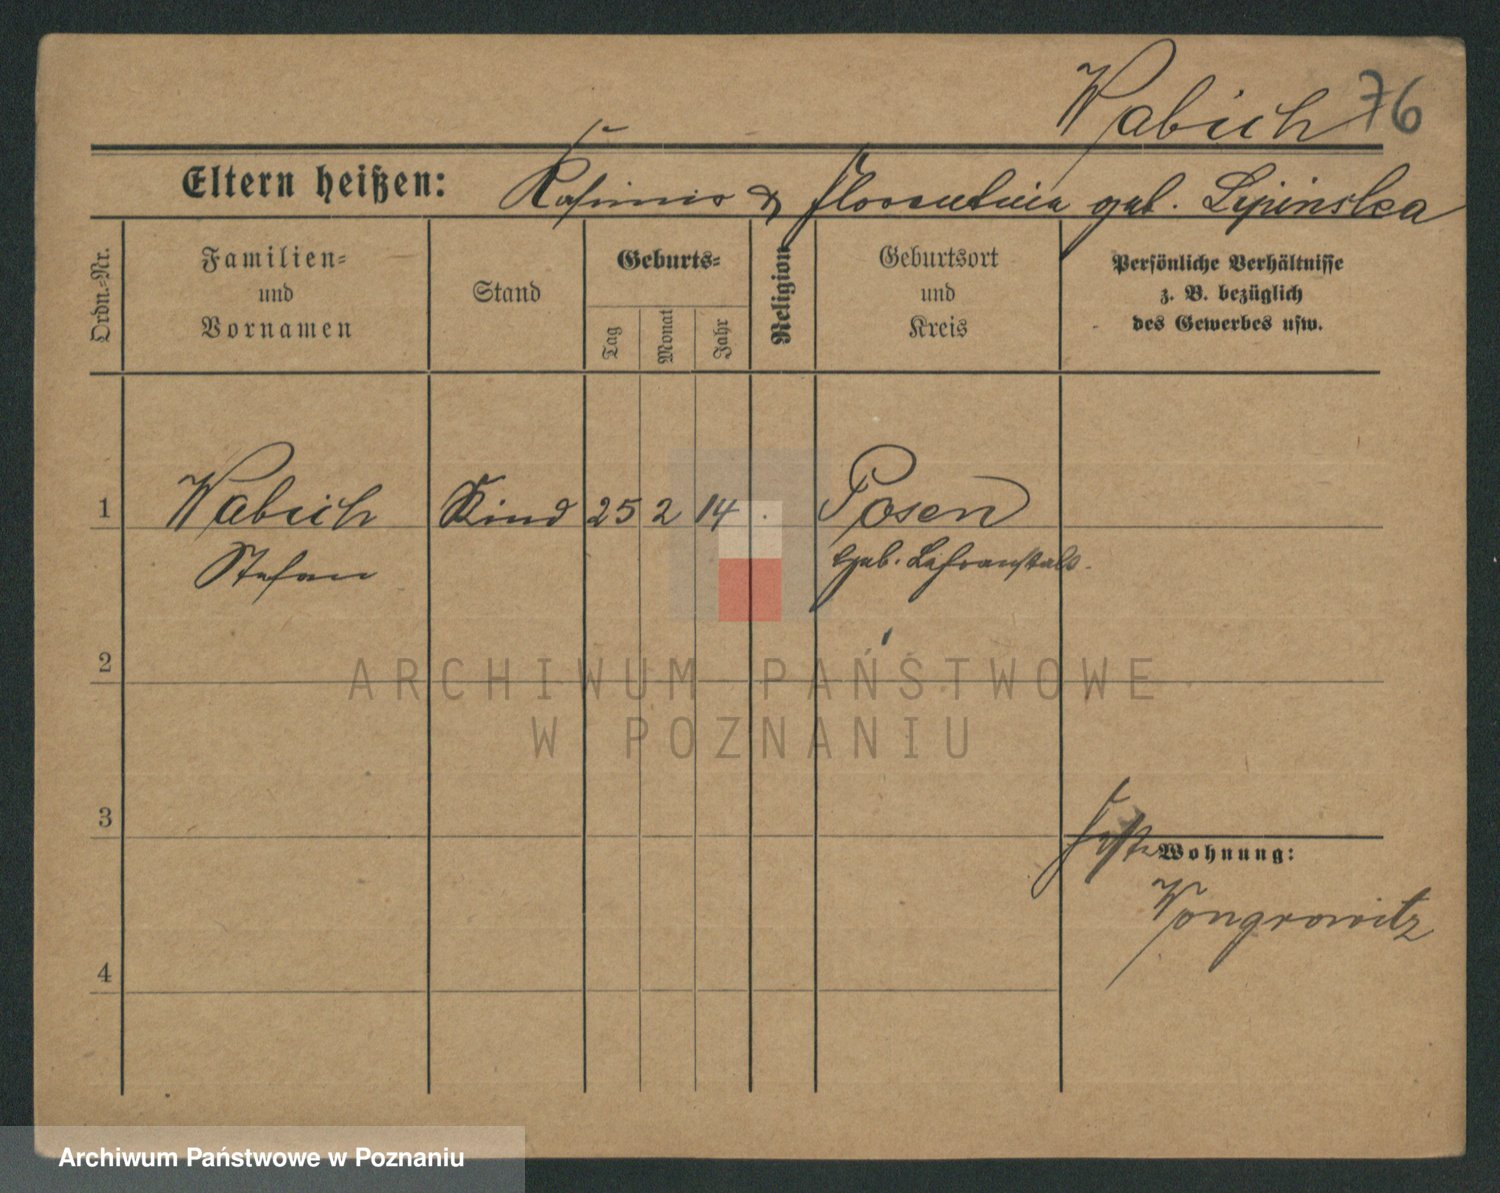 Wabich 76
Eltern heißen: & Florentina geb. Lipinska
Ordn.-Nr.
Familien-
und
Vornamen
Stand
Geburts-
Tag
Monat
Jahr
Religion
Geburtsort
und
Kreis
Persönliche Verhältnisse
z. B. bezüglich
des Gewerbes usw.
1 Wabich Kind 25 2 14 . Posen
Stefan
2
ARCHIWUM PAŃSTWOWE
W POZNANIU
3
Wohnung:
Wongrowitz
4
Archiwum Państwowe w Poznaniu